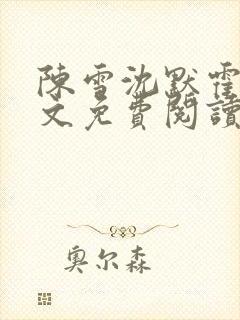 陳雪沈默霍
文免費閱讀
奥尔森